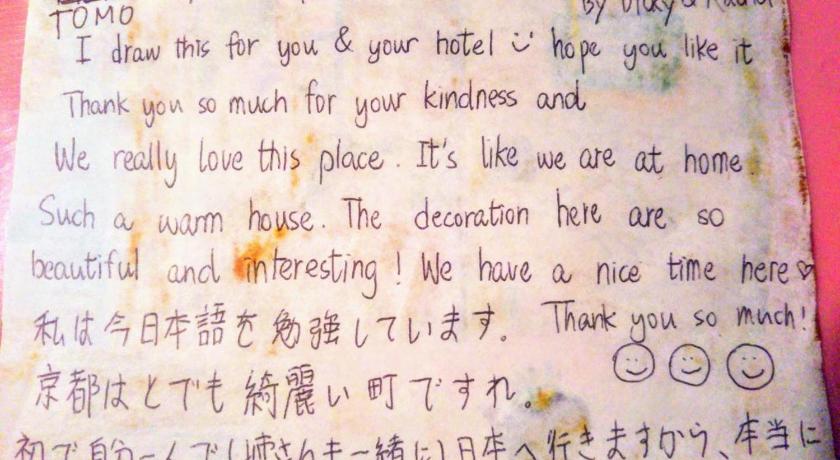 TOMO
By Vicky &
I draw this for you & your hotel hope you like it
Thank you so much for your kindness and
We really love this place. It's like we are at home.
Such a warm house. The decoration here are so
beautiful and interesting! We have a nice time here♡
私は今日本語を勉強しています。 Thank you so much!
京都はとでも綺麗い町ですれ。
初で自分一人で(姉さんも一緒に)日本へ行きますから、本当に